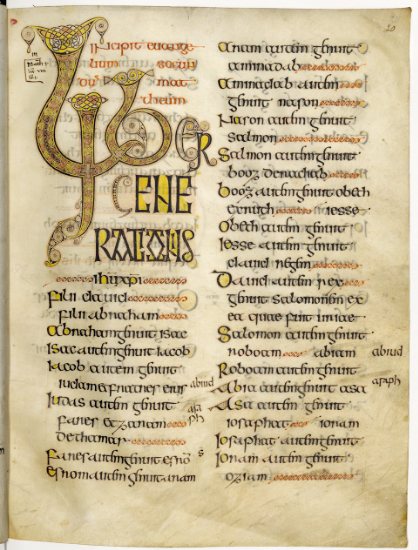 Incipit euange
lium secun
dum mat
theum
LIBER
GENE
RATIONIS
ihu xpi
Filii dauid
filii abraham
Abraham genuit isac
Isac autem genuit iacob
Iacob autem genuit
iudam et fratres eius
Iudas autem genuit
fares et zaram
de thamar
Fares autem genuit esrō
Esrom autem genuit aram
Aram autem genuit
aminadab
Aminadab autem
genuit nason
Nason autem genuit
salmon
Salmon autem genuit
booz de rachab
Booz autem genuit obeth
ex ruth iesse
Obeth autem genuit
Iesse autem genuit
dauid regem
Dauid autem rex
genuit salomonem ex
ea quae fuit uriae
Salomon autem genuit
roboam abiam abiud
Roboam autem genuit
Abia autem genuit asa asaph
Asa autem genuit
iosaphat ioram
Iosaphat autem genuit
Ioram autem genuit
oziam